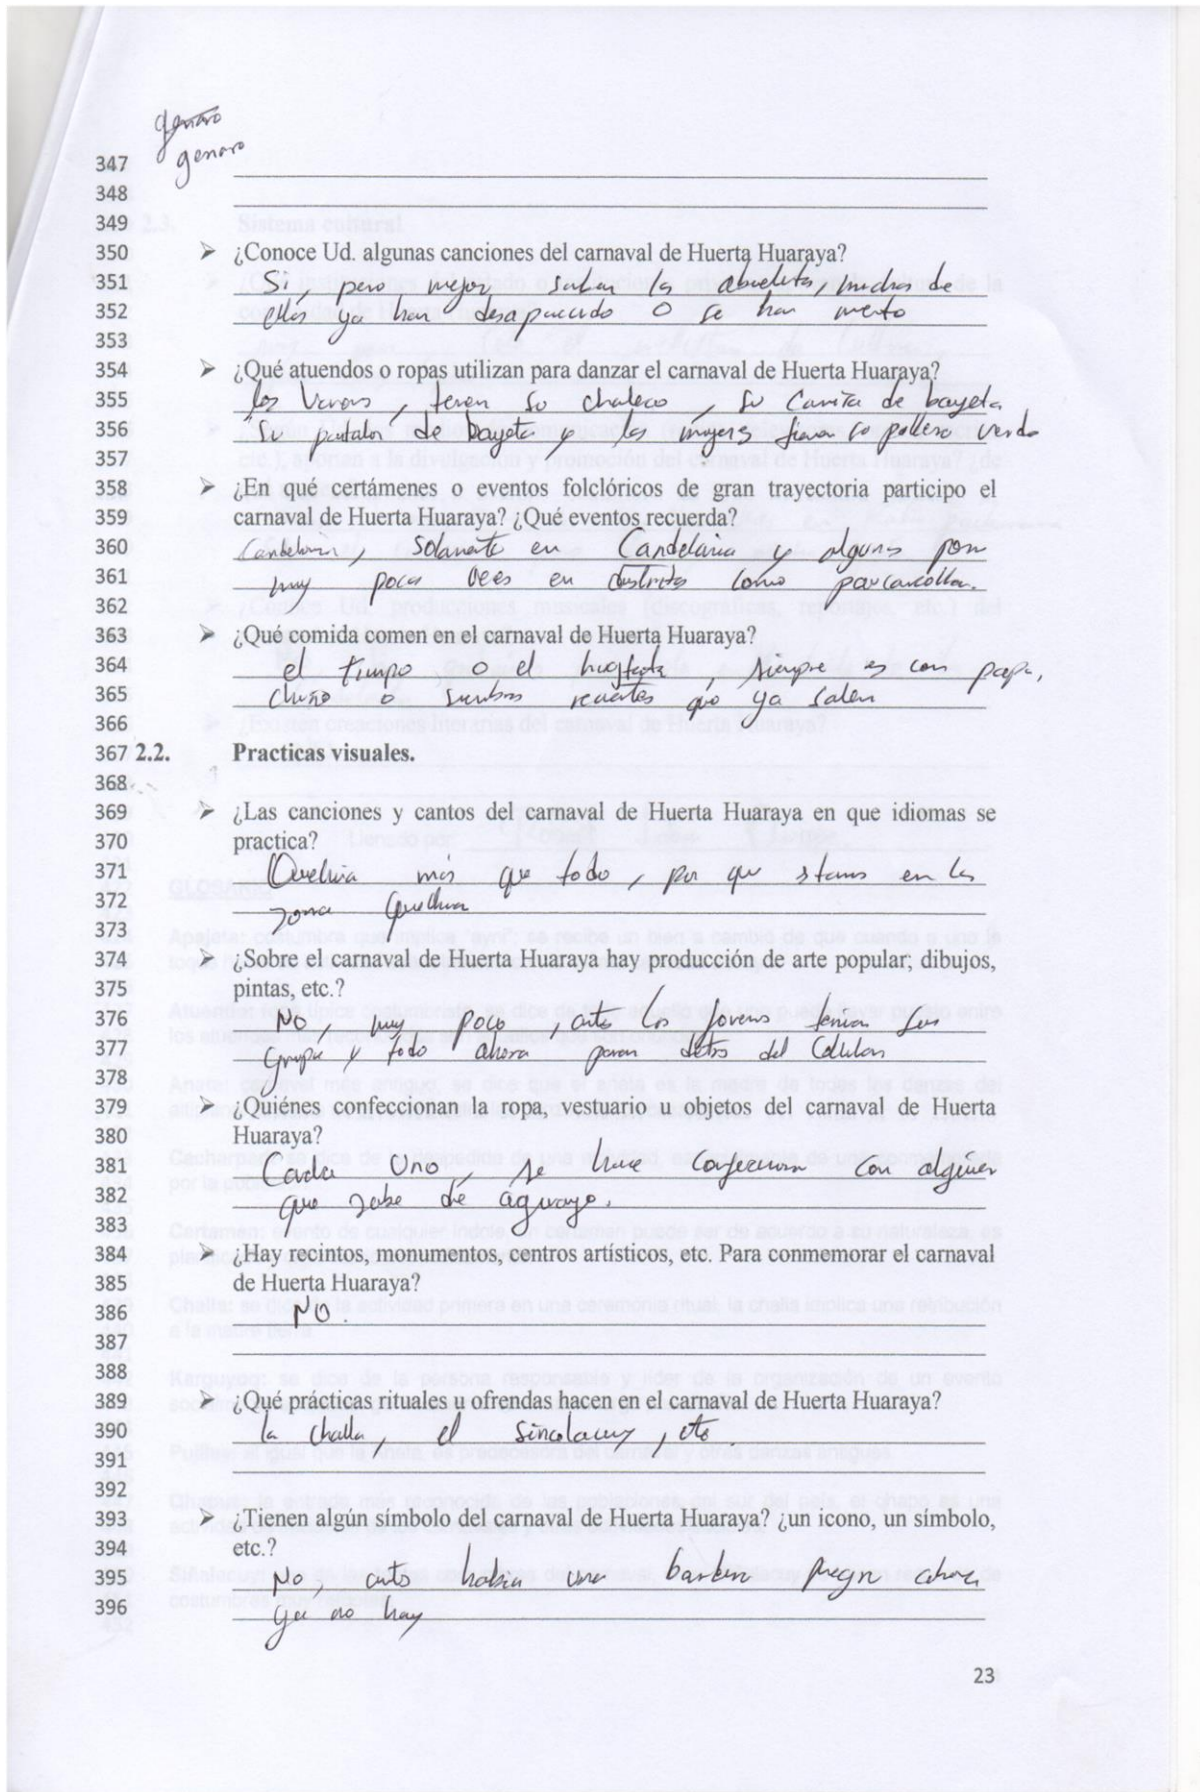 genaro
genaro
347
348
349
350 ➢ ¿Conoce Ud. algunas canciones del carnaval de Huerta Huaraya?
351 Si, pero mejor saban los abuelitos, muchos de
352 ellos ya han desaparecido o se han muerto
353
354 ➢ ¿Qué atuendos o ropas utilizan para danzar el carnaval de Huerta Huaraya?
355 los Varons, tenen su chaleco, su Camisa de bayeta
356 Su pantalon de bayeta y las mujeres tienen su pollera verde
357
358 ➢ ¿En qué certámenes o eventos folclóricos de gran trayectoria participo el
359 carnaval de Huerta Huaraya? ¿Qué eventos recuerda?
360 Candelaria, Solamente en Candelaria y algunos
361 muy pocas veces en distritos como paucarcolla.
362
363 ➢ ¿Qué comida comen en el carnaval de Huerta Huaraya?
364 el timpo o el, siempre es con papa,
365 chuño o recientes que ya salen
366
367 2.2. Practicas visuales.
368
369 ➢ ¿Las canciones y cantos del carnaval de Huerta Huaraya en que idiomas se
370 practica?
371 Quechua más que todo, por que stamos en la
372 zona Quechua
373
374 ➢ ¿Sobre el carnaval de Huerta Huaraya hay producción de arte popular; dibujos,
375 pintas, etc.?
376 No, muy poco, antes los jovenes tenian sus
377 Grupos y todo ahora paran detras del Celular
378
379 ➢ ¿Quiénes confeccionan la ropa, vestuario u objetos del carnaval de Huerta
380 Huaraya?
381 Cada Uno, se hace confeccionar con alguien
382 que sabe de aguayo.
383
384 ➢ ¿Hay recintos, monumentos, centros artísticos, etc. Para conmemorar el carnaval
385 de Huerta Huaraya?
386 No.
387
388
389 ➢ ¿Qué prácticas rituales u ofrendas hacen en el carnaval de Huerta Huaraya?
390 la challa, el Siñalacuy, etc
391
392
393 ➢ ¿Tienen algún símbolo del carnaval de Huerta Huaraya? ¿un icono, un símbolo,
394 etc.?
395 No, antes habia una ahora
396 ya no hay
23